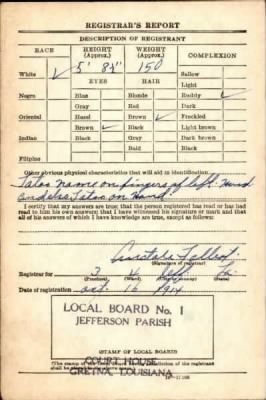 REGISTRAR'S REPORT
DESCRIPTION OF REGISTRANT
RACE HEIGHT (Approx.) WEIGHT (Approx.) COMPLEXION
White ✓ 5' 8½" 150 Sallow
EYES HAIR Light
Negro Blue Blonde Ruddy ✓
Gray Red Dark
Oriental Hazel Brown ✓ Freckled
Brown ✓ Black Light brown
Indian Black Gray Dark brown
Bald Black
Filipino
Other obvious physical characteristics that will aid in identification
Tatoo name on fingers of left Hand
Tatoo on Hand
I certify that my answers are true; that the person registered has read or has had
read to him his own answers; that I have witnessed his signature or mark and that
all of his answers of which I have knowledge are true, except as follows:
(Signature of registrar)
Registrar for 3 4 Jeff La
(Precinct) (Ward) (State)
Date of registration Oct. 16
LOCAL BOARD No. 1
JEFFERSON PARISH
COURT HOUSE
GRETNA, LOUISIANA
(STAMP OF LOCAL BOARD)